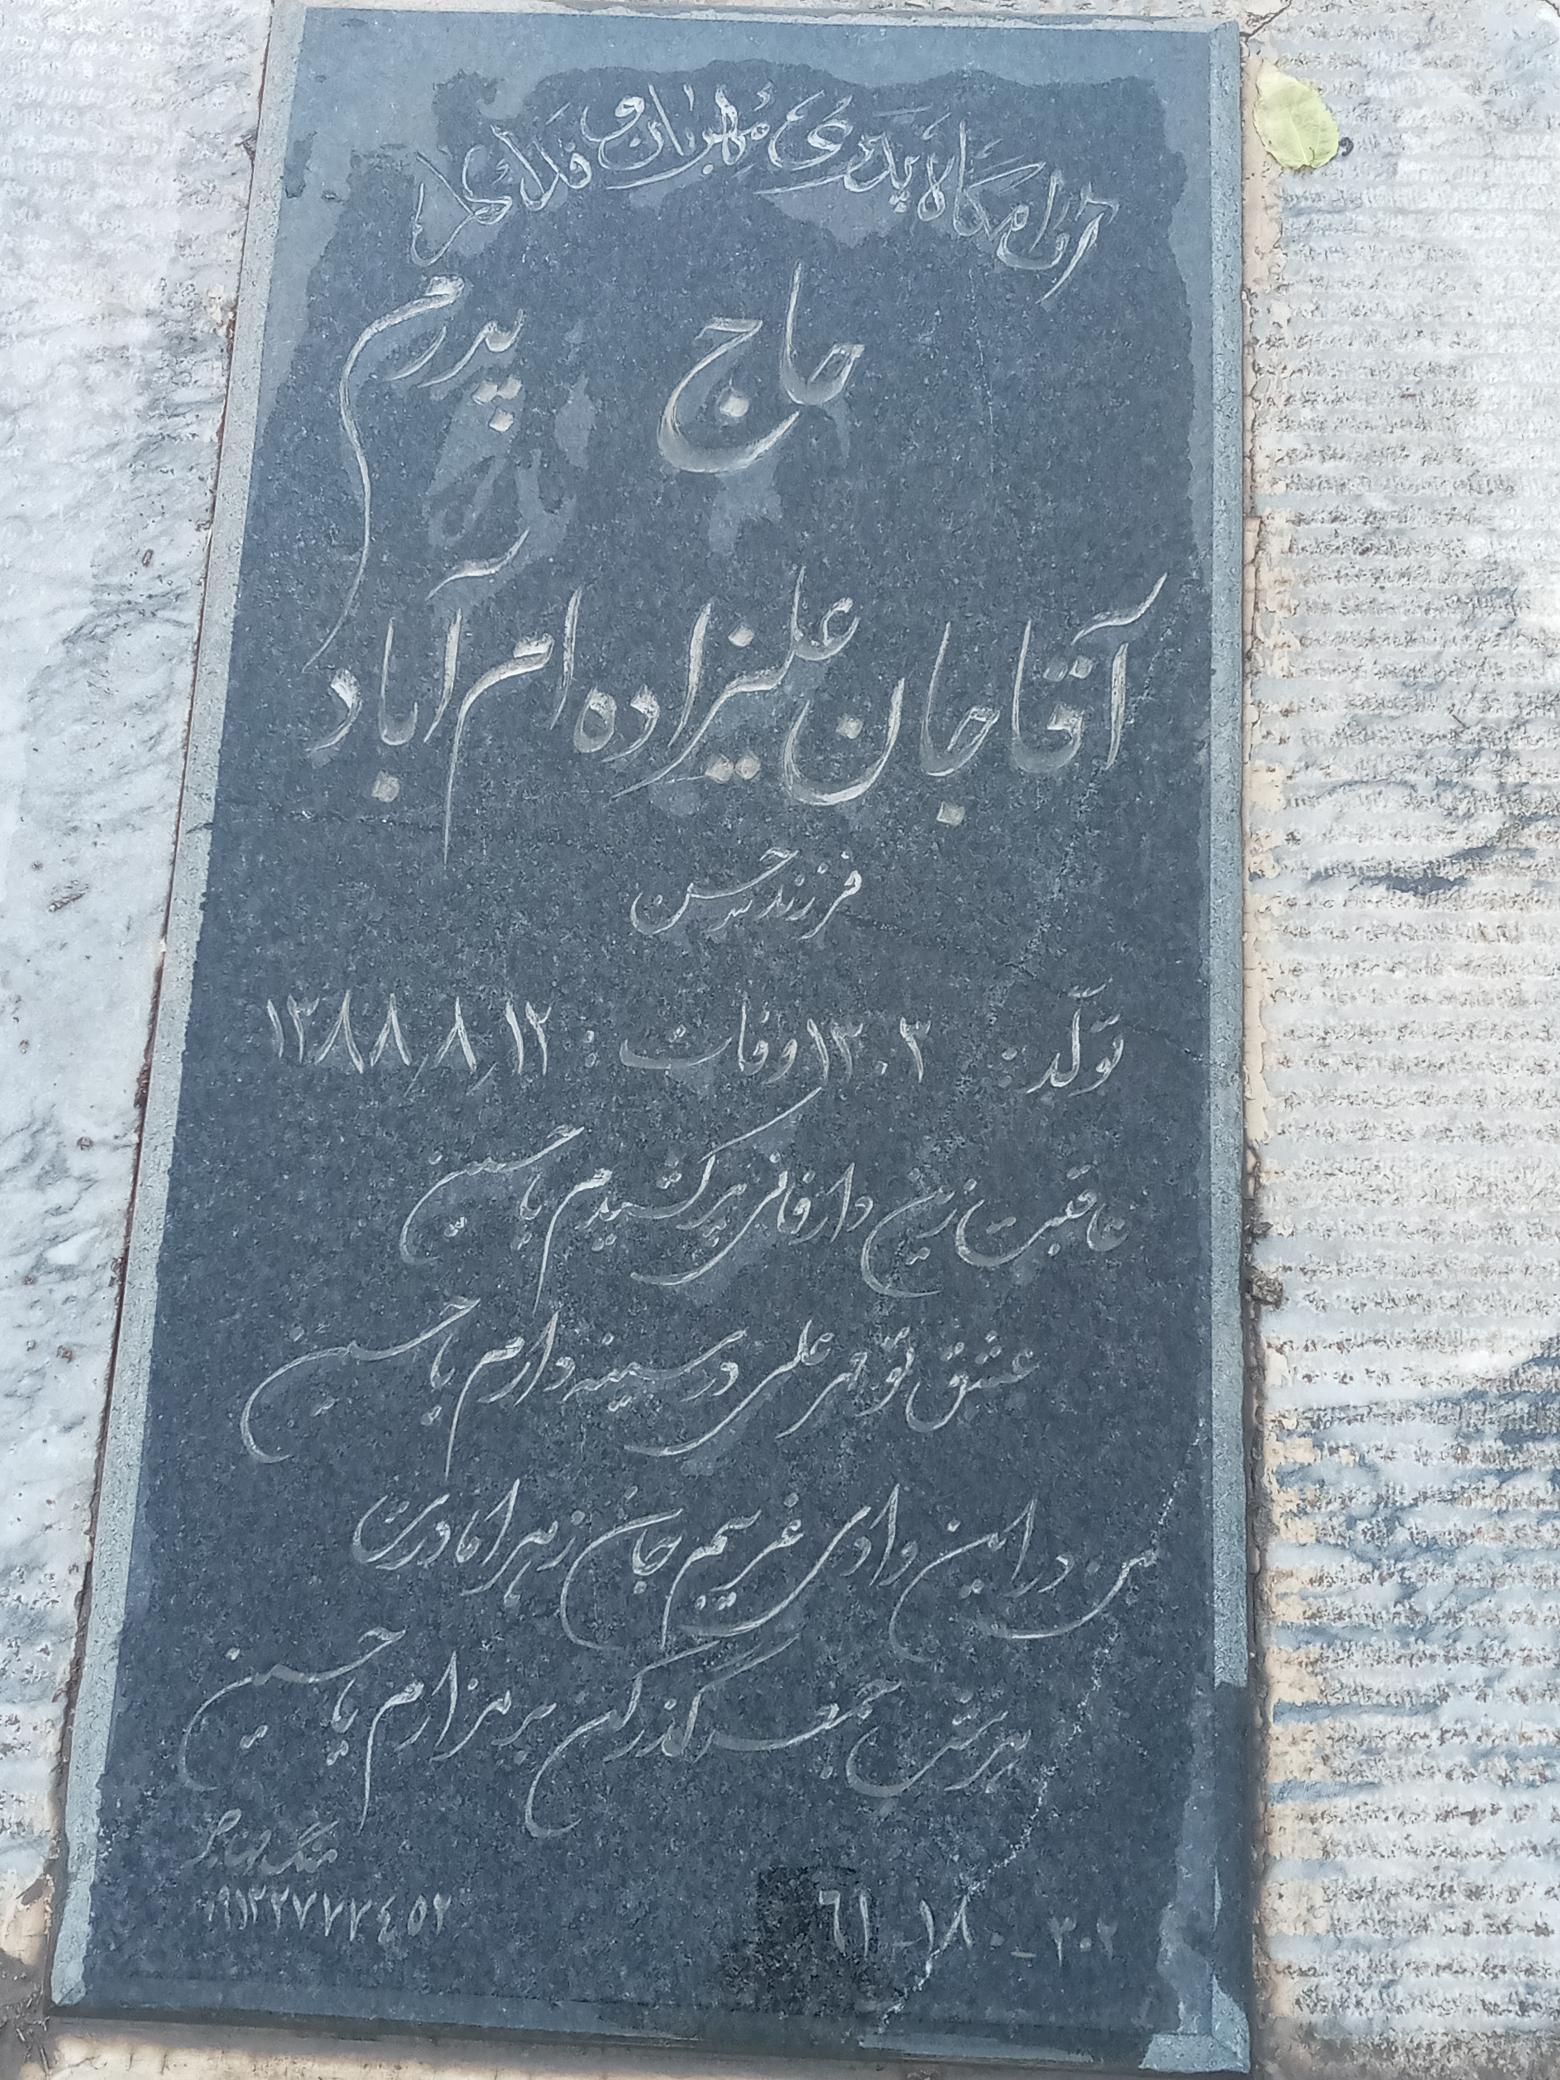 آرامگاه پدری مهربان و فداکار
حاج پدرم
آقاجان علیزاده ام آباد
فرزند حسن
تولد: ۱۳۰۳ وفات: ۱۳۸۸٫۸٫۱۲
عاقبت زین دار فانی پر کشیدم یا حسین
عشق تو مهر علی در سینه دارم یا حسین
من در این وادی غریبم جان زهرا مادرت
هر شب جمعه گذر کن بر مزارم یا حسین
۶۱-۱۸۰-۳۰۲
۰۹۱۲۲۷۷۲۴۵۲